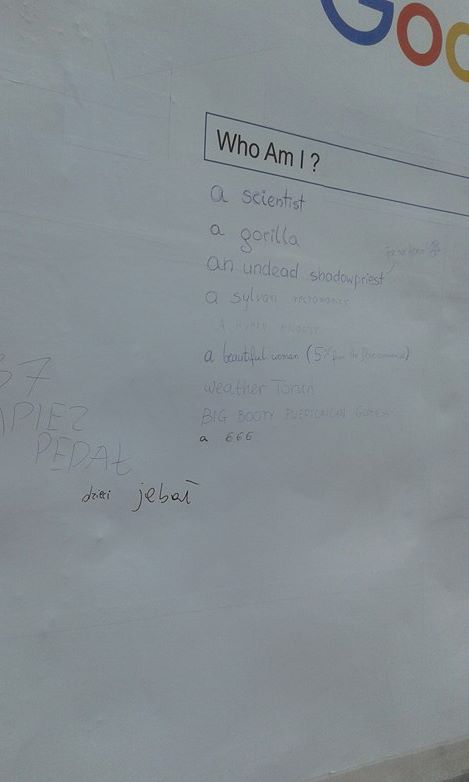 Goo
Who Am I ?
a scientist
a gorilla
an undead shadowpriest
a sylvan necromancer
a beautiful woman (5%
weather Torsen
BIG BOOTY
a 666
37
APIEZ
PEDAŁ
dzieci jebał